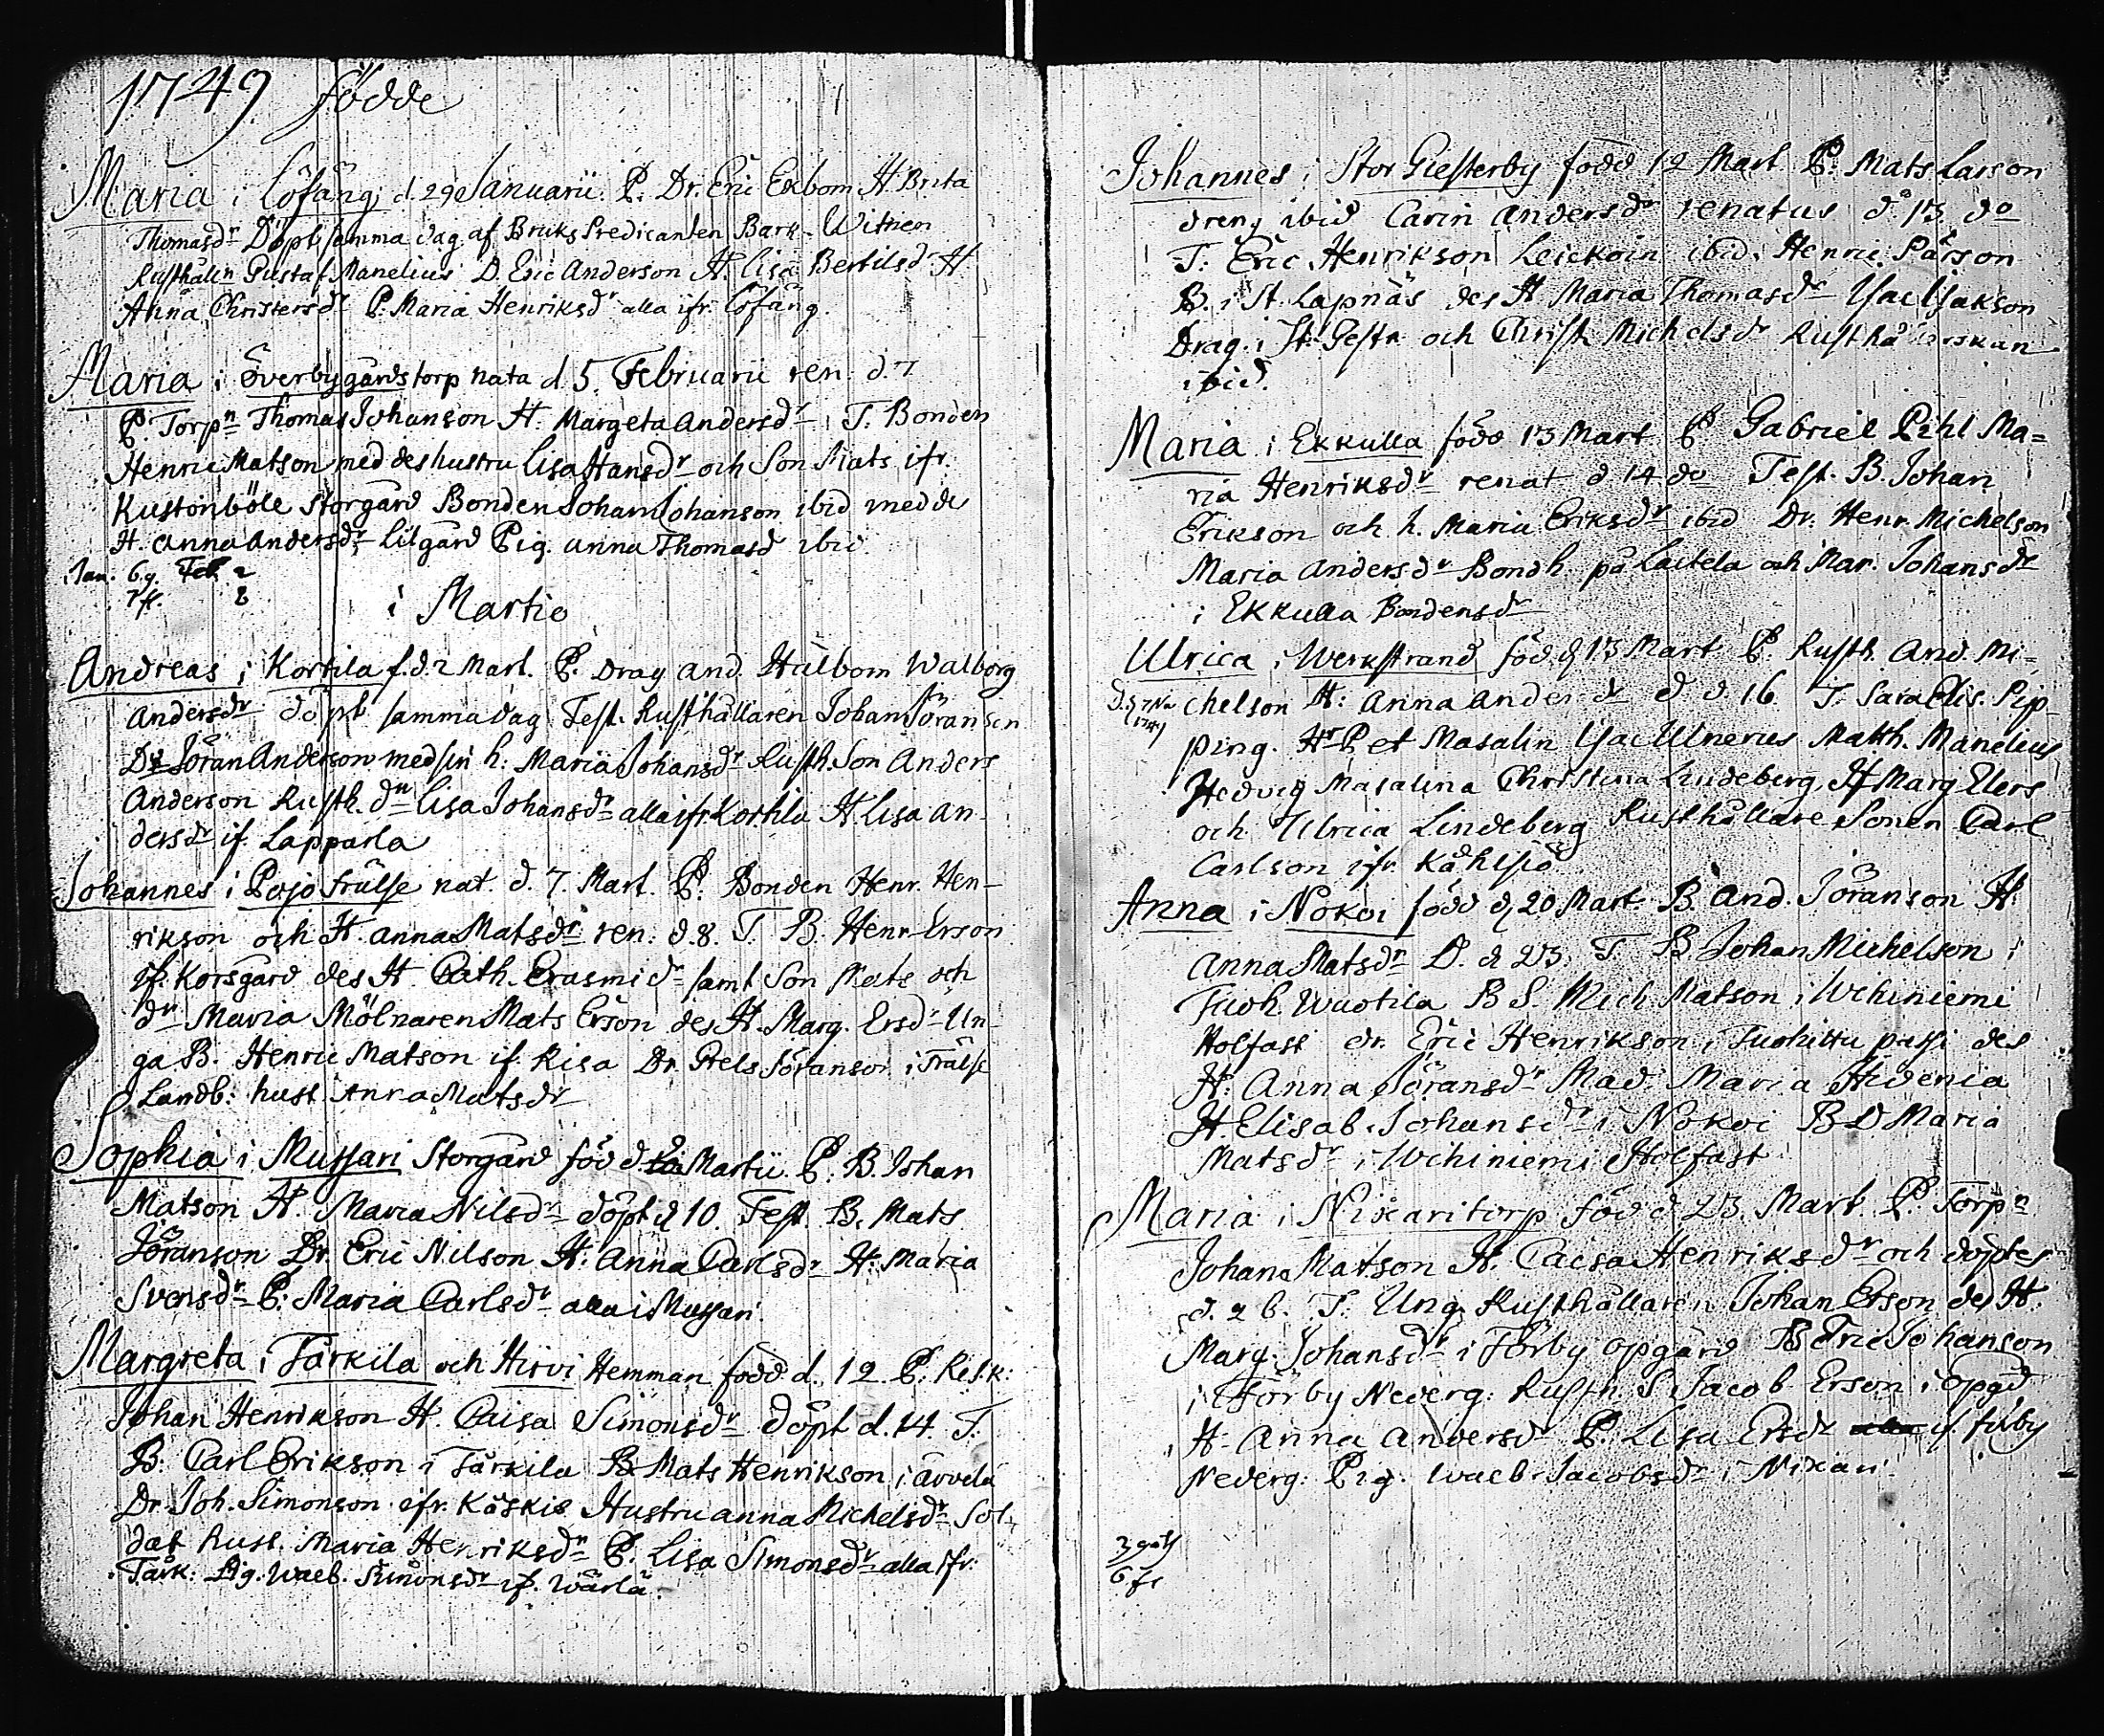 1749 födde
Maria i Löfång d. 29 Januarii P. Dr. Eric Exbom H. Brita
Thomasdr Döpt samma dag af Bruks Predicanten Bark. Witnen
Rusthåll:n Gustaf Manelius D. Eric Anderson H. Lisa Bertilsd H.
Anna Christersdr P. Maria Henriksdr alla ifr. Löfång.
Maria i Överbygårdstorp nata d 5. Februarii ren. d. 7
P. Torpn Thomas Johanson H. Margeta Andersdr T. Bonden
Henric Matson med des hustru Lisa Hansdr och Son Mats ifr.
Kustönböle Storgård Bonden Johan Johanson ibid med de
H. Anna Andersdr Lilgård Pig. Anna Thomasd ibid
Jan. 6 g. Feb. 2
i Martio
Andreas i Kortila f. d. 2 Mart. P. Drag And. Hülbom Walborg
Andersdr döpt samma dag Test. Rusthållaren Johan Jöranson
Dr Jöran Anderson med sin h: Maria Johansdr Rusth. Son Anders
Anderson Rusth. dn Lisa Johansdr alla ifr Kortila H Lisa An-
dersdr if. Lapparla
Johannes i Pojo frälse nat. d. 7. Mart. P. Bonden Henr. Hen-
rikson och H. Anna Matsdr ren: d. 8. T. B. Henr Erson
if. Korsgård des H Cath. Erasmidr samt Son Mats och
dr Maria Mölnaren Mats Erson des H. Marg. Ersdr Un-
ga B. Henric Matson if. Risa Dr. Jöranson i Frälse
Landb: hust. Anna Matsdr
Sophia i Mussari Storgård föd d Martii P. B. Johan
Matson H. Maria Nilsdr döpt d 10. Test. B. Mats
Jöranson Dr. Eric Nilson H. Anna Carlsdr H. Maria
Svensdr P. Maria Carlsdr alla i Mussari
Margreta i Tärkila och Hirvi Hemman född d. 12 P. Res.k:
Johan Henrikson H. Caisa Simonsdr döpt d. 14. T.
B. Carl Erikson i Tärkila B Mats Henrikson i Avvela
Dr. Joh. Simonson ifr. Köskis Hustru Anna Michelsdr Sol-
dat hust. Maria Henriksdr P. Lisa Simonsdr alla ifr.
Tärk: Pig. Waeb. Simonsdr if. Wärlä.
Johannes i Stor Giesterby född 12 Mart. P. Mats Larson
dreng ibid Carin Andersdr renatus d. 13 do
T: Eric Henrikson Leickoin ibid. Henric Pärson
B. i St. Lapnäs des H Maria Thomasdr Isac Isakson
Drag. i St. Gestr och Christ. Michelsdr Rusthållerskan
ibid.
Maria i Ekkulla född 13 Mart P. Gabriel Pihl Ma=
ria Henriksdr renat d 14 do Test. B. Johan
Erikson och h. Maria Eriksdr ibid Dr. Henr. Michelson
Maria Andersdr Bondh. på Laitela och Mar. Johansdr
i Ekkulla Bondensdr
Ulrica i Werkstrand föd d 13 Mart P. Rusth. And. Mi=
chelson H: Anna Andersdr d d 16 T. Sara Elis. Pip-
ping. Hr Pet Masalin Isac Unerus Matth. Manelius
Hedvig Masalina Christina Lindeberg H Marg Elers
och Ulrica Lindeberg Rusthållare Sonen Carl
Carlson ifr
Anna i Nokoi född d 20 Mart B And. Jöranson H:
Anna Matsdr D. d 23. T B Johan Michelson i
Wuotila B S. Mich. Matson i Wehiniemi
Holfast dr. Eric Henrikson i Tuohittu passi des
H: Anna Jöransdr Mad. Maria Hidenia
H. Elisab. Johansdr i Nokoi B D Maria
Matsdr i Wehiniemi Holfast
Maria i Nixaritorp föd d 23 Mart P. Torpn
Johan Matson H. Caisa Henriksdr och döptes
d. 26. T. Ung. Rusthållaren Johan Erson des H.
Marg: Johansdr i Förby Opgård B Eric Johanson
i Förby Nederg: Rusth. S Jacob Erson i Opgd
H. Anna Andersdr P. Lisa Ersdr if. förby
Nederg: Pig. Waeb. Jacobsdr i Nixari